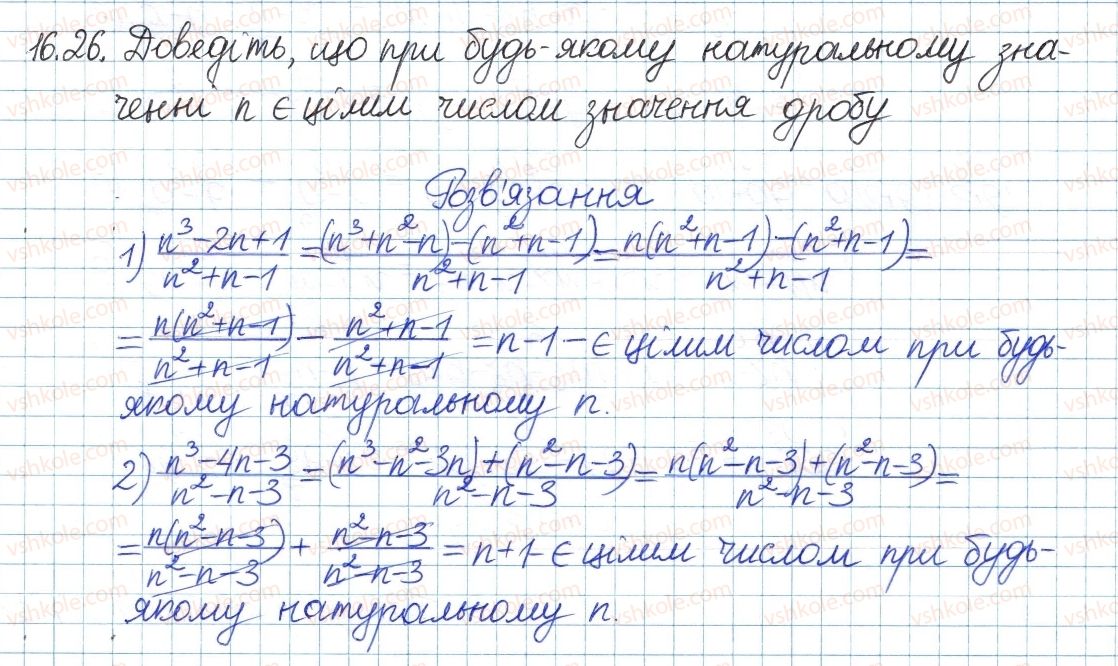 16.26. Доведіть, що при будь-якому натуральному зна-
ченні n є цілим числом значення дробу
Розв'язання
1) (n³-2n+1)/(n²+n-1) = ((n³+n²-n)-(n²+n-1))/(n²+n-1) = (n(n²+n-1)-(n²+n-1))/(n²+n-1) =
= n(n²+n-1)/(n²+n-1) - (n²+n-1)/(n²+n-1) = n-1 - є цілим числом при будь-
якому натуральному n.
2) (n³-4n-3)/(n²-n-3) = ((n³-n²-3n)+(n²-n-3))/(n²-n-3) = (n(n²-n-3)+(n²-n-3))/(n²-n-3) =
= n(n²-n-3)/(n²-n-3) + (n²-n-3)/(n²-n-3) = n+1 - є цілим числом при будь-
якому натуральному n.